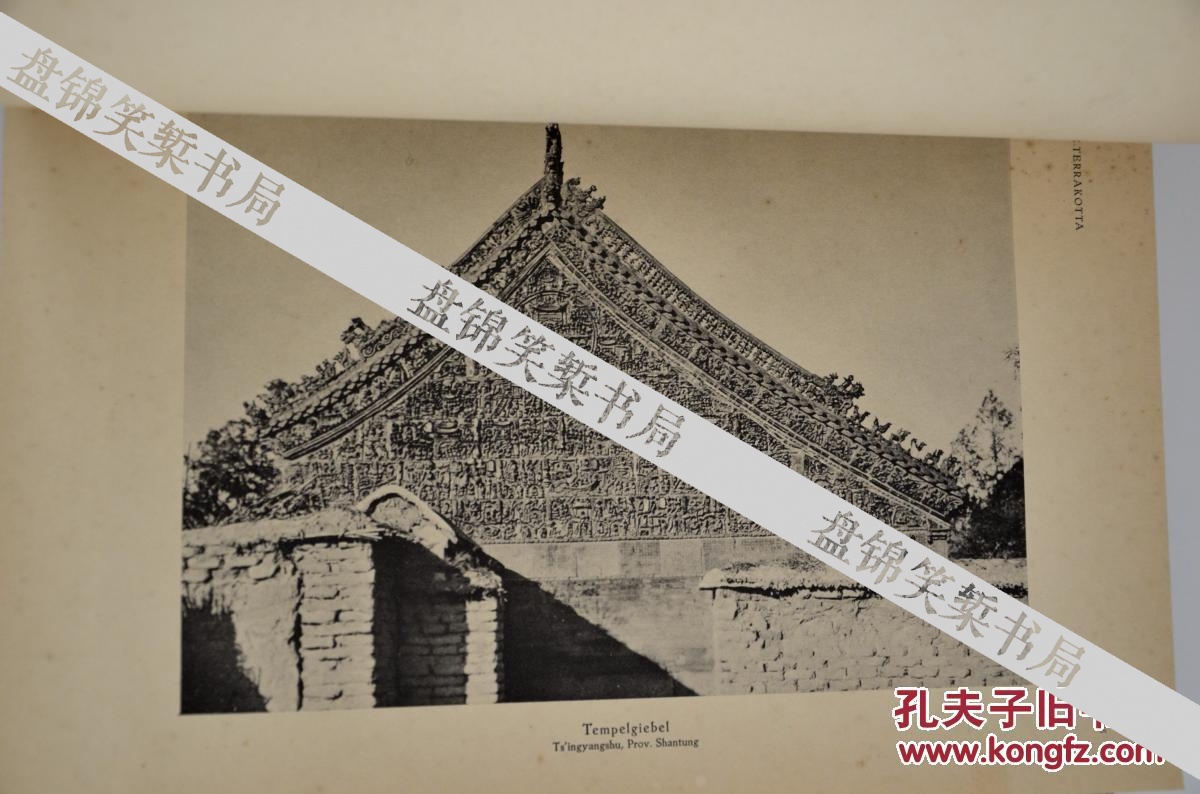 TERRAKOTTA
盘锦笑椠书局
盘锦笑椠书局
盘锦笑椠书局
Tempelgiebel
Ts'ingyangshu, Prov. Shantung
孔夫子旧书
www.kongfz.com